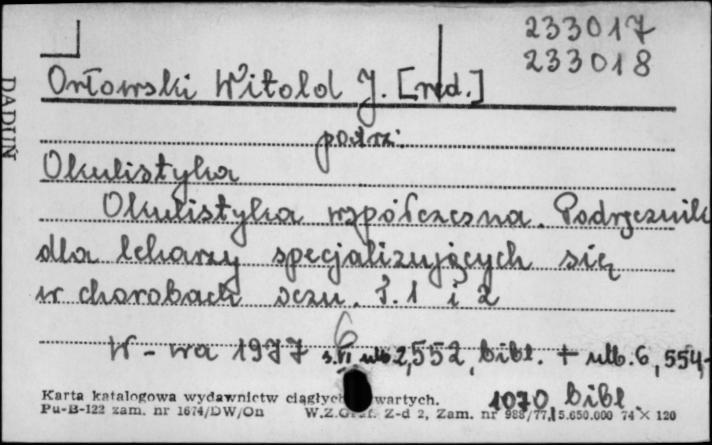 233017
233018
DADUŃ
Orłowski Witold J. [red.]
patrz:
Okulistyka
Okulistyka współczesna. Podręcznik
dla lekarzy specjalizujących się
w chorobach oczu. T. 1 i 2
6
W-wa 1977 s. VI nlb. 2, 552, bibl. + nlb. 6, 554-
1070 bibl.
Karta katalogowa wydawnictw ciągłych wartych.
Pu-B-122 zam. nr 1674/DW/On W.Z.Graf. Z-d 2, Zam. nr 988/77, 5.650.000 74 × 120